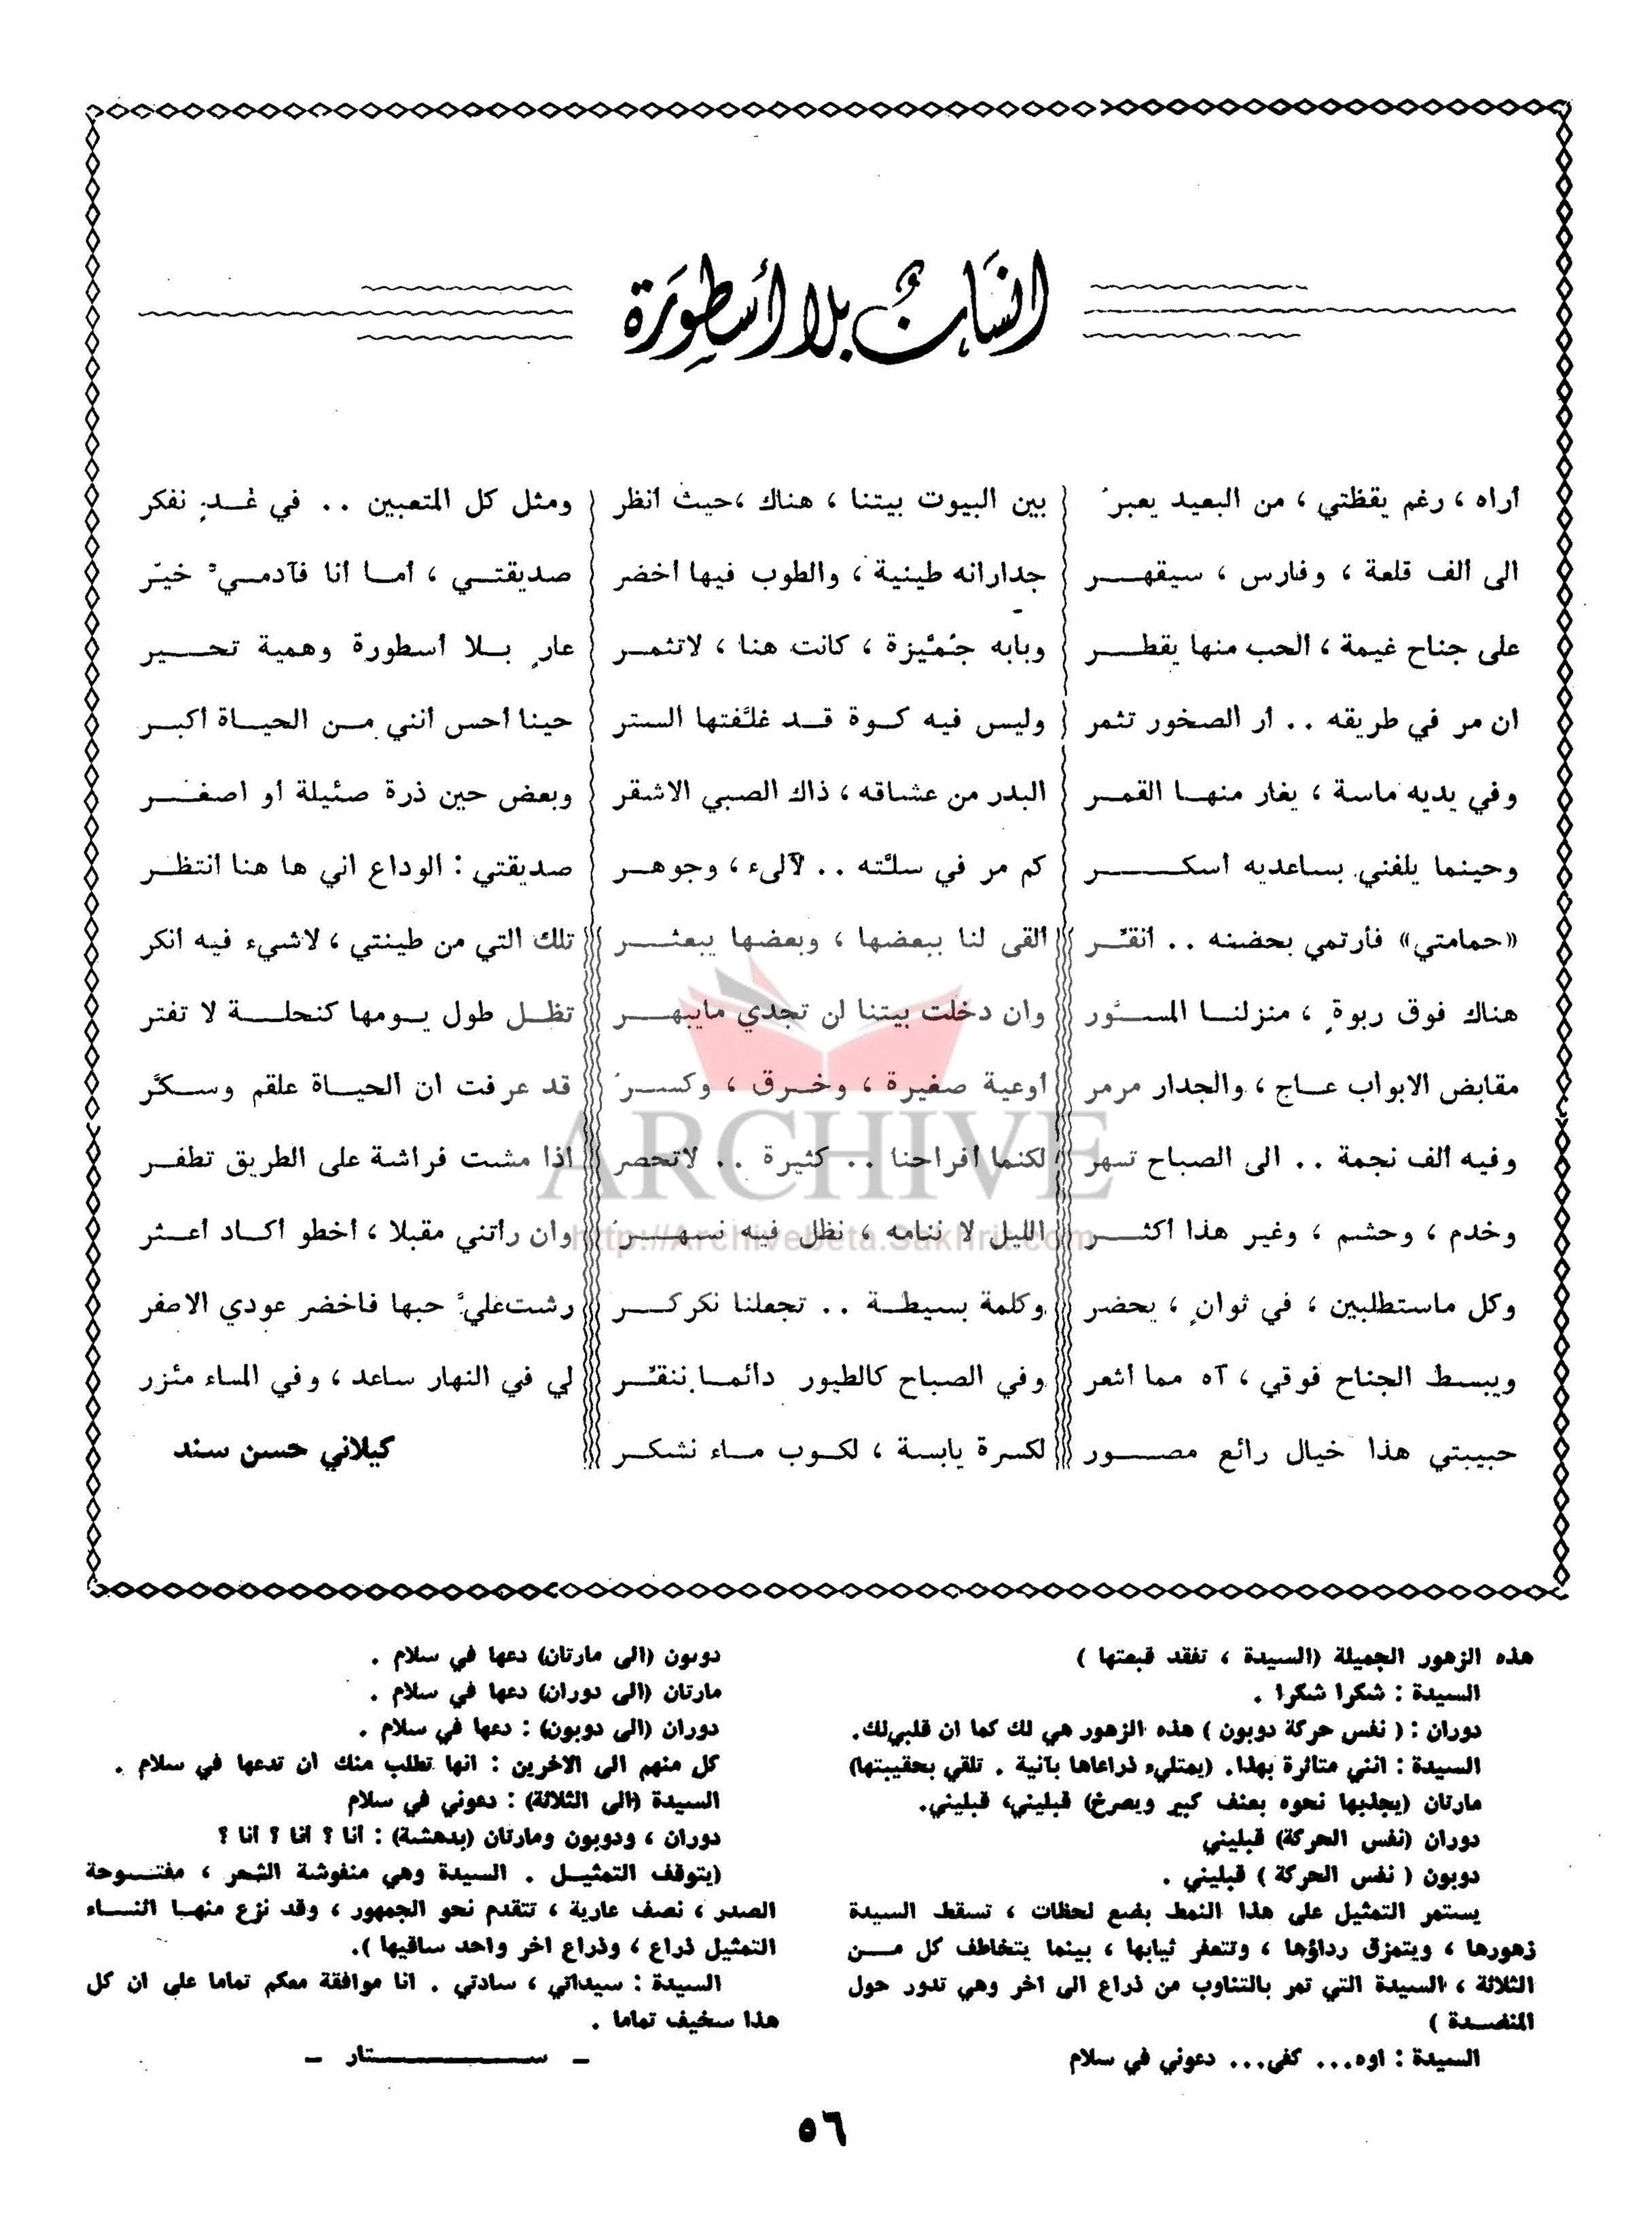 انسانٌ بلا أسطورة
أراه ، رغم يقظتي ، من البعيد يعبرُ
الى ألف قلعة ، وفارس ، سيقهـــر
على جناح غيمة ، الحب منها يقطـــر
ان مر في طريقه . . أر الصخور تثمر
وفي يديه ماسة ، يغار منهـــا القمـــر
وحينما يلفني بساعديه أسكـــــر
«حمامتي» فأرتمي بحضنه . . أنقـّـــر
هناك فوق ربوةٍ ، منزلنـــا المســـوّر
مقابض الابواب عـــاج ، والجدار مرمر
وفيه ألف نجمة . . الى الصباح تسهر
وخدم ، وحشم ، وغير هذا أكثـــر
وكل ماستطلبين ، في ثوانٍ ، يحضر
ويبســط الجناح فوقي ، آه مما أشعر
حبيبتي هذا خيال رائع مصـــور
بين البيوت بيتنا ، هناك ،حيث أنظر
جدارانه طينية ، والطوب فيها أخضر
وبابه جُمَّيزة ، كانت هنا ، لاتثمـــر
وليس فيه كـــوة قـــد غلَّفتها الستر
البدر من عشاقه ، ذاك الصبي الاشقر
كم مر في سلـَّته . . لآلىء ، وجوهـــر
ألقى لنا ببعضها ، وبعضها يبعثـــر
وان دخلت بيتنا لن تجدي مايبهـــر
أوعية صغيرة ، وخـــرق ، وكســـرُ
لكنما أفراحنا . . كثيرة . . لاتحصر
الليل لا ننامه ، نظل فيه نسهـــرُ
وكلمة بسيطـــة . . تجعلنا نكركـــر
وفي الصباح كالطيور دائمـــا ننقـّـــر
لكسرة يابسة ، لكـــوب مـــاء نشكـــر
ومثل كل المتعبين . . في غـــدٍ نفكر
صديقتـــي ، أمـــا أنا فآدمـــيٌّ خيـّر
عارٍ بـــلا أسطورة وهمية تحـــير
حينا أحس أنني مـــن الحيـــاة أكبـــر
وبعض حين ذرة ضئيلة أو أصغـــر
صديقتي : الوداع اني ها هنا أنتظـــر
تلك التي من طينتي ، لاشيء فيه أنكر
تظـــل طول يـــومها كنحلـــة لا تفتر
قد عرفت أن الحيـــاة علقم وســـكَّر
اذا مشت فراشة على الطريق تطفـــر
وان رأتني مقبلا ، أخطو أكـــاد أعـــثر
رشت عليَّ حبها فاخضر عودي الاصفر
لي في النهار ساعد ، وفي المساء مئزر
كيلاني حسن سند
ARCHIVE
http://Archivebeta.Sakhrit.com
هذه الزهور الجميلة (السيدة ، تفقد قبعتها )
السيدة : شكرا شكرا .
دوران : ( نفس حركة دوبون ) هذه الزهور هي لك كما ان قلبي لك.
السيدة : انني متاثرة بهذا. (يمتليء ذراعاها بآنية . تلقي بحقيبتها)
مارتان (يجذبها نحوه بعنف كبير ويصرخ) قبليني، قبليني.
دوران (نفس الحركة) قبليني
دوبون ( نفس الحركة ) قبليني .
يستمر التمثيل على هذا النمط بضع لحظات ، تسقط السيدة
زهورها ، ويتمزق رداؤها ، وتتعفر ثيابها ، بينما يتخاطف كل مـــن
الثلاثة ، السيدة التي تمر بالتناوب من ذراع الى اخر وهي تدور حول
المنضـــدة )
السيدة : اوه... كفى... دعوني في سلام
دوبون (الى مارتان) دعها في سلام .
مارتان (الى دوران) دعها في سلام .
دوران (الى دوبون) : دعها في سلام .
كل منهم الى الاخرين : انها تطلب منك ان تدعها في سلام .
السيدة (الى الثلاثة) : دعوني في سلام
دوران ، ودوبون ومارتان (بدهشة) : أنا ؟ أنا ؟ أنا ؟
(يتوقف التمثيـــل . السيدة وهي منفوشة الشعر ، مفتـــوحة
الصدر ، نصف عارية ، تتقدم نحو الجمهور ، وقد نزع منهـــا اثنـــاء
التمثيل ذراع ، وذراع اخر واحد ساقيها ).
السيدة : سيداتي ، سادتي . انا موافقة معكم تماما على ان كل
هذا سخيف تماما .
– ســـــتار –
٥٦